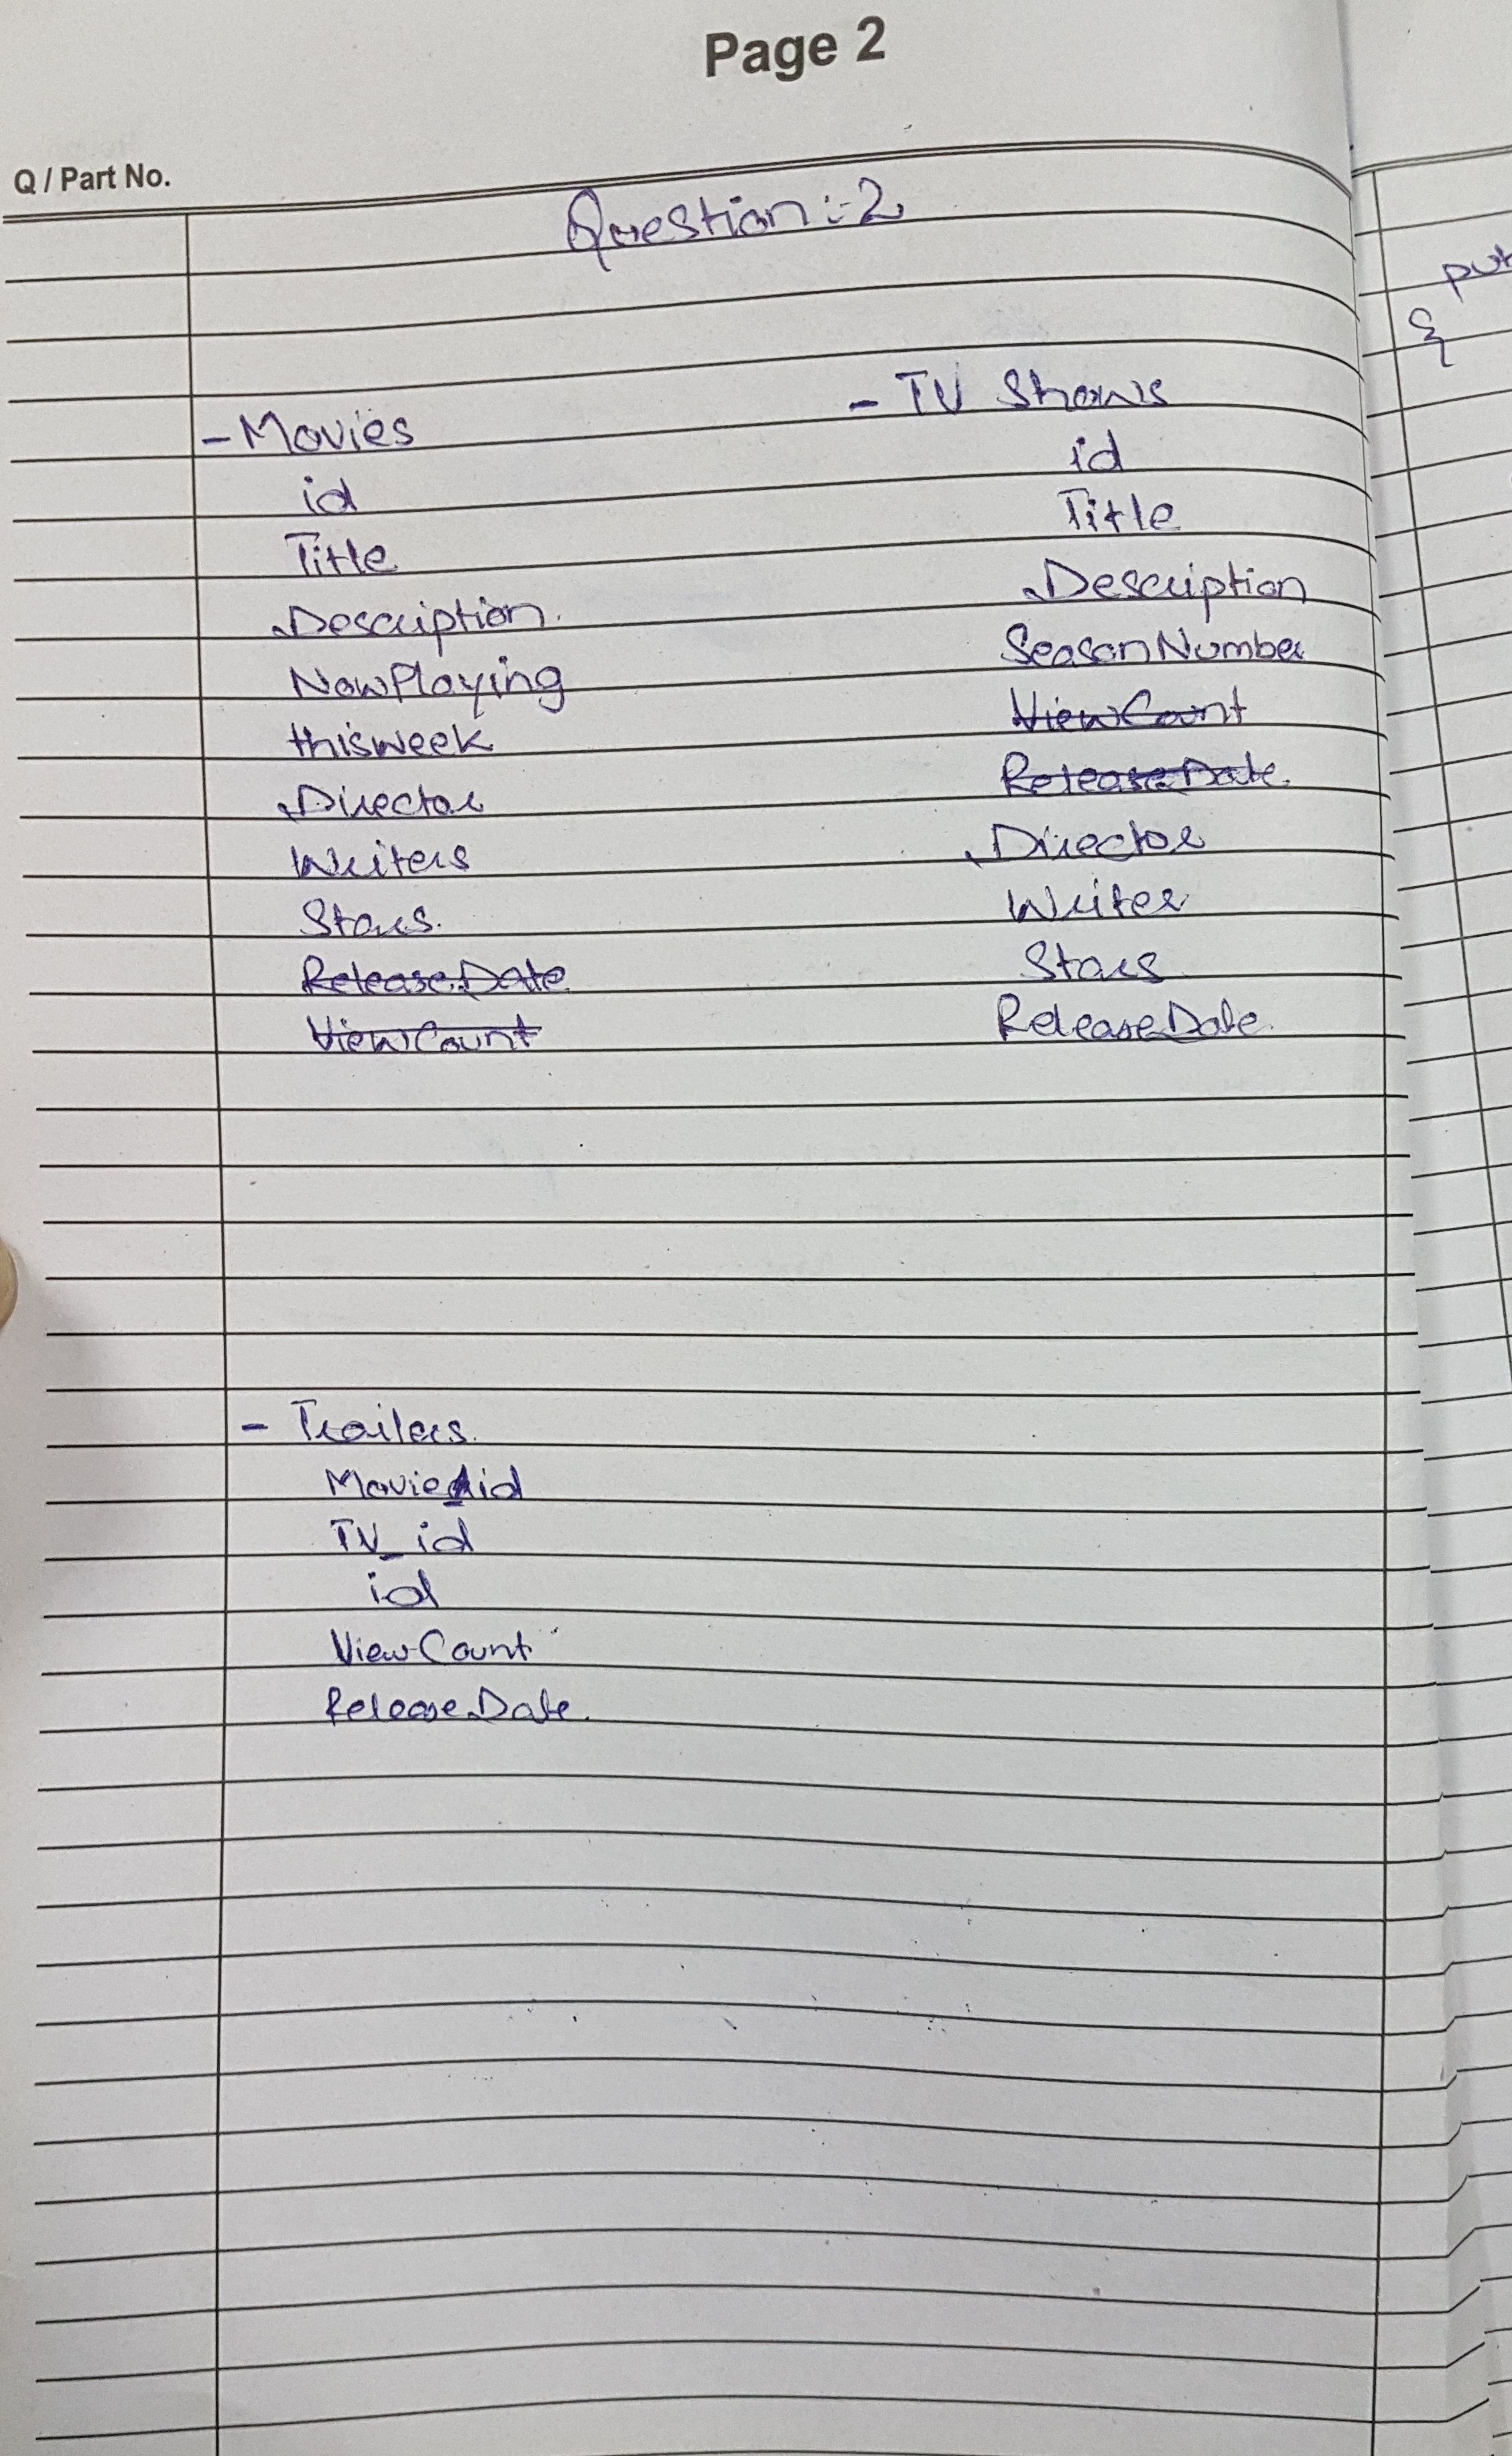 Page 2
Q / Part No.
Question :- 2
- Movies
id
Title
Description.
NowPlaying
thisweek
Director
Writers
Stars.
ReleaseDate
ViewCount
- TV Shows
id
Title
Description
SeasonNumber
ViewCount
ReleaseDate.
Director
Writer
Stars
ReleaseDate.
- Trailers.
Movie_id
TV_id
id
ViewCount
ReleaseDate.